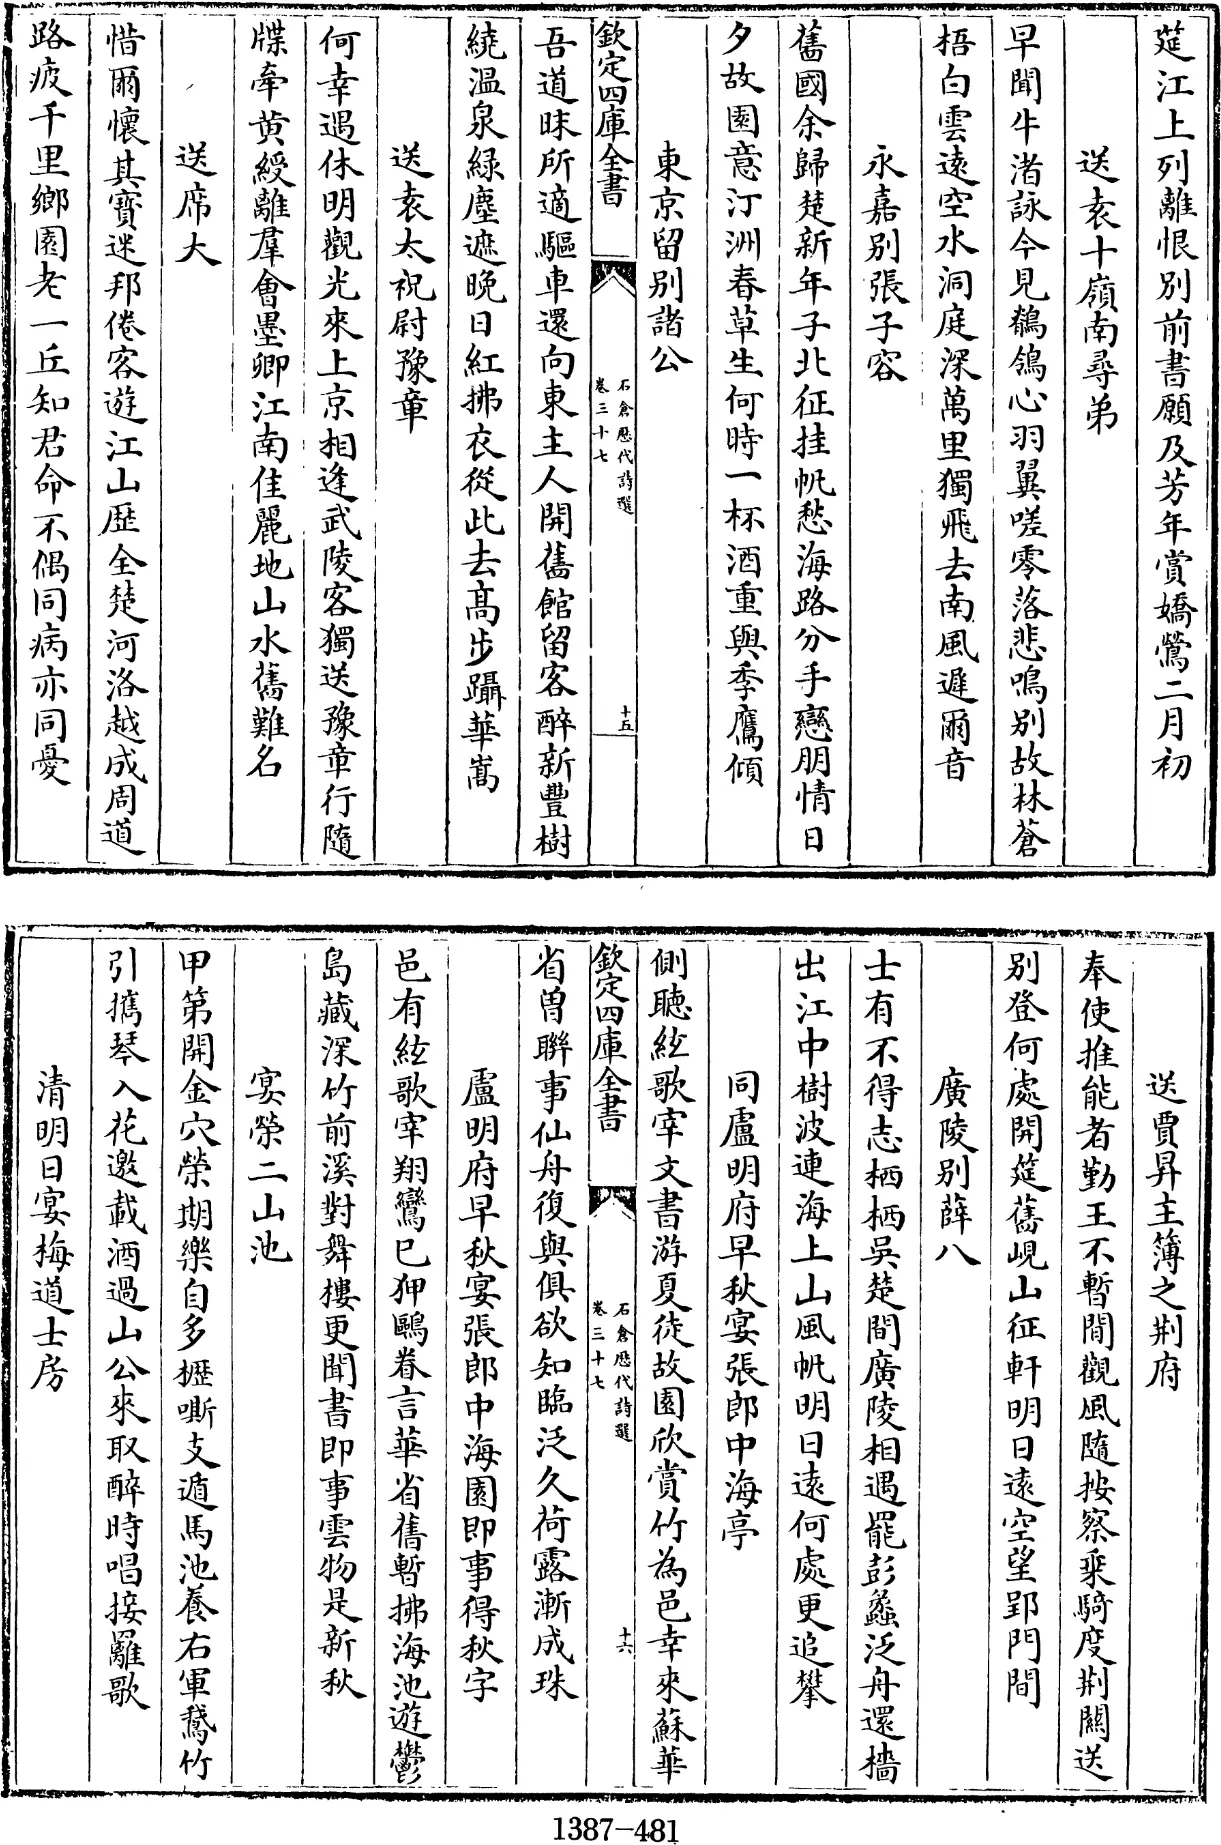 筵江上列離恨别前書願及芳年賞嬌鶯二月初
送袁十嶺南尋弟
早聞牛渚詠今見鶺鴒心羽翼嗟零落悲鳴别故林蒼
梧白雲遠空水洞庭深萬里獨飛去南風遲爾音
永嘉别張子容
舊國余歸楚新年子北征挂帆愁海路分手戀朋情日
夕故園意汀洲春草生何時一杯酒重與季鷹傾
東京留别諸公
欽定四庫全書
石倉歷代詩選
卷三十七
十五
吾道昧所適驅車還向東主人開舊館留客醉新豐樹
繞温泉緑塵遮晚日紅拂衣從此去高步躡華嵩
送袁太祝尉豫章
何幸遇休明觀光來上京相逢武陵客獨送豫章行隨
牒牽黄綬離羣會墨卿江南佳麗地山水舊難名
送席大
惜爾懷其寶迷邦倦客遊江山歷全楚河洛越成周道
路疲千里鄉園老一丘知君命不偶同病亦同憂
送賈昇主簿之荆府
奉使推能者勤王不暫閒觀風隨按察乘騎度荆關送
别登何處開筵舊峴山征軒明日遠空望郢門間
廣陵别薛八
士有不得志栖栖吳楚間廣陵相遇罷彭蠡泛舟還檣
出江中樹波連海上山風帆明日遠何處更追攀
同盧明府早秋宴張郎中海亭
側聽絃歌宰文書游夏徒故園欣賞竹為邑幸來蘇華
欽定四庫全書
石倉歷代詩選
卷三十七
十六
省曾聯事仙舟復與俱欲知臨泛久荷露漸成珠
盧明府早秋宴張郎中海園即事得秋字
邑有絃歌宰翔鸞已狎鷗眷言華省舊暫拂海池遊鬱
島藏深竹前溪對舞樓更聞書即事雲物是新秋
宴榮二山池
甲第開金穴榮期樂自多攊嘶支遁馬池養右軍鵞竹
引攜琴入花邀載酒過山公來取醉時唱接䍦歌
清明日宴梅道士房
1387-481